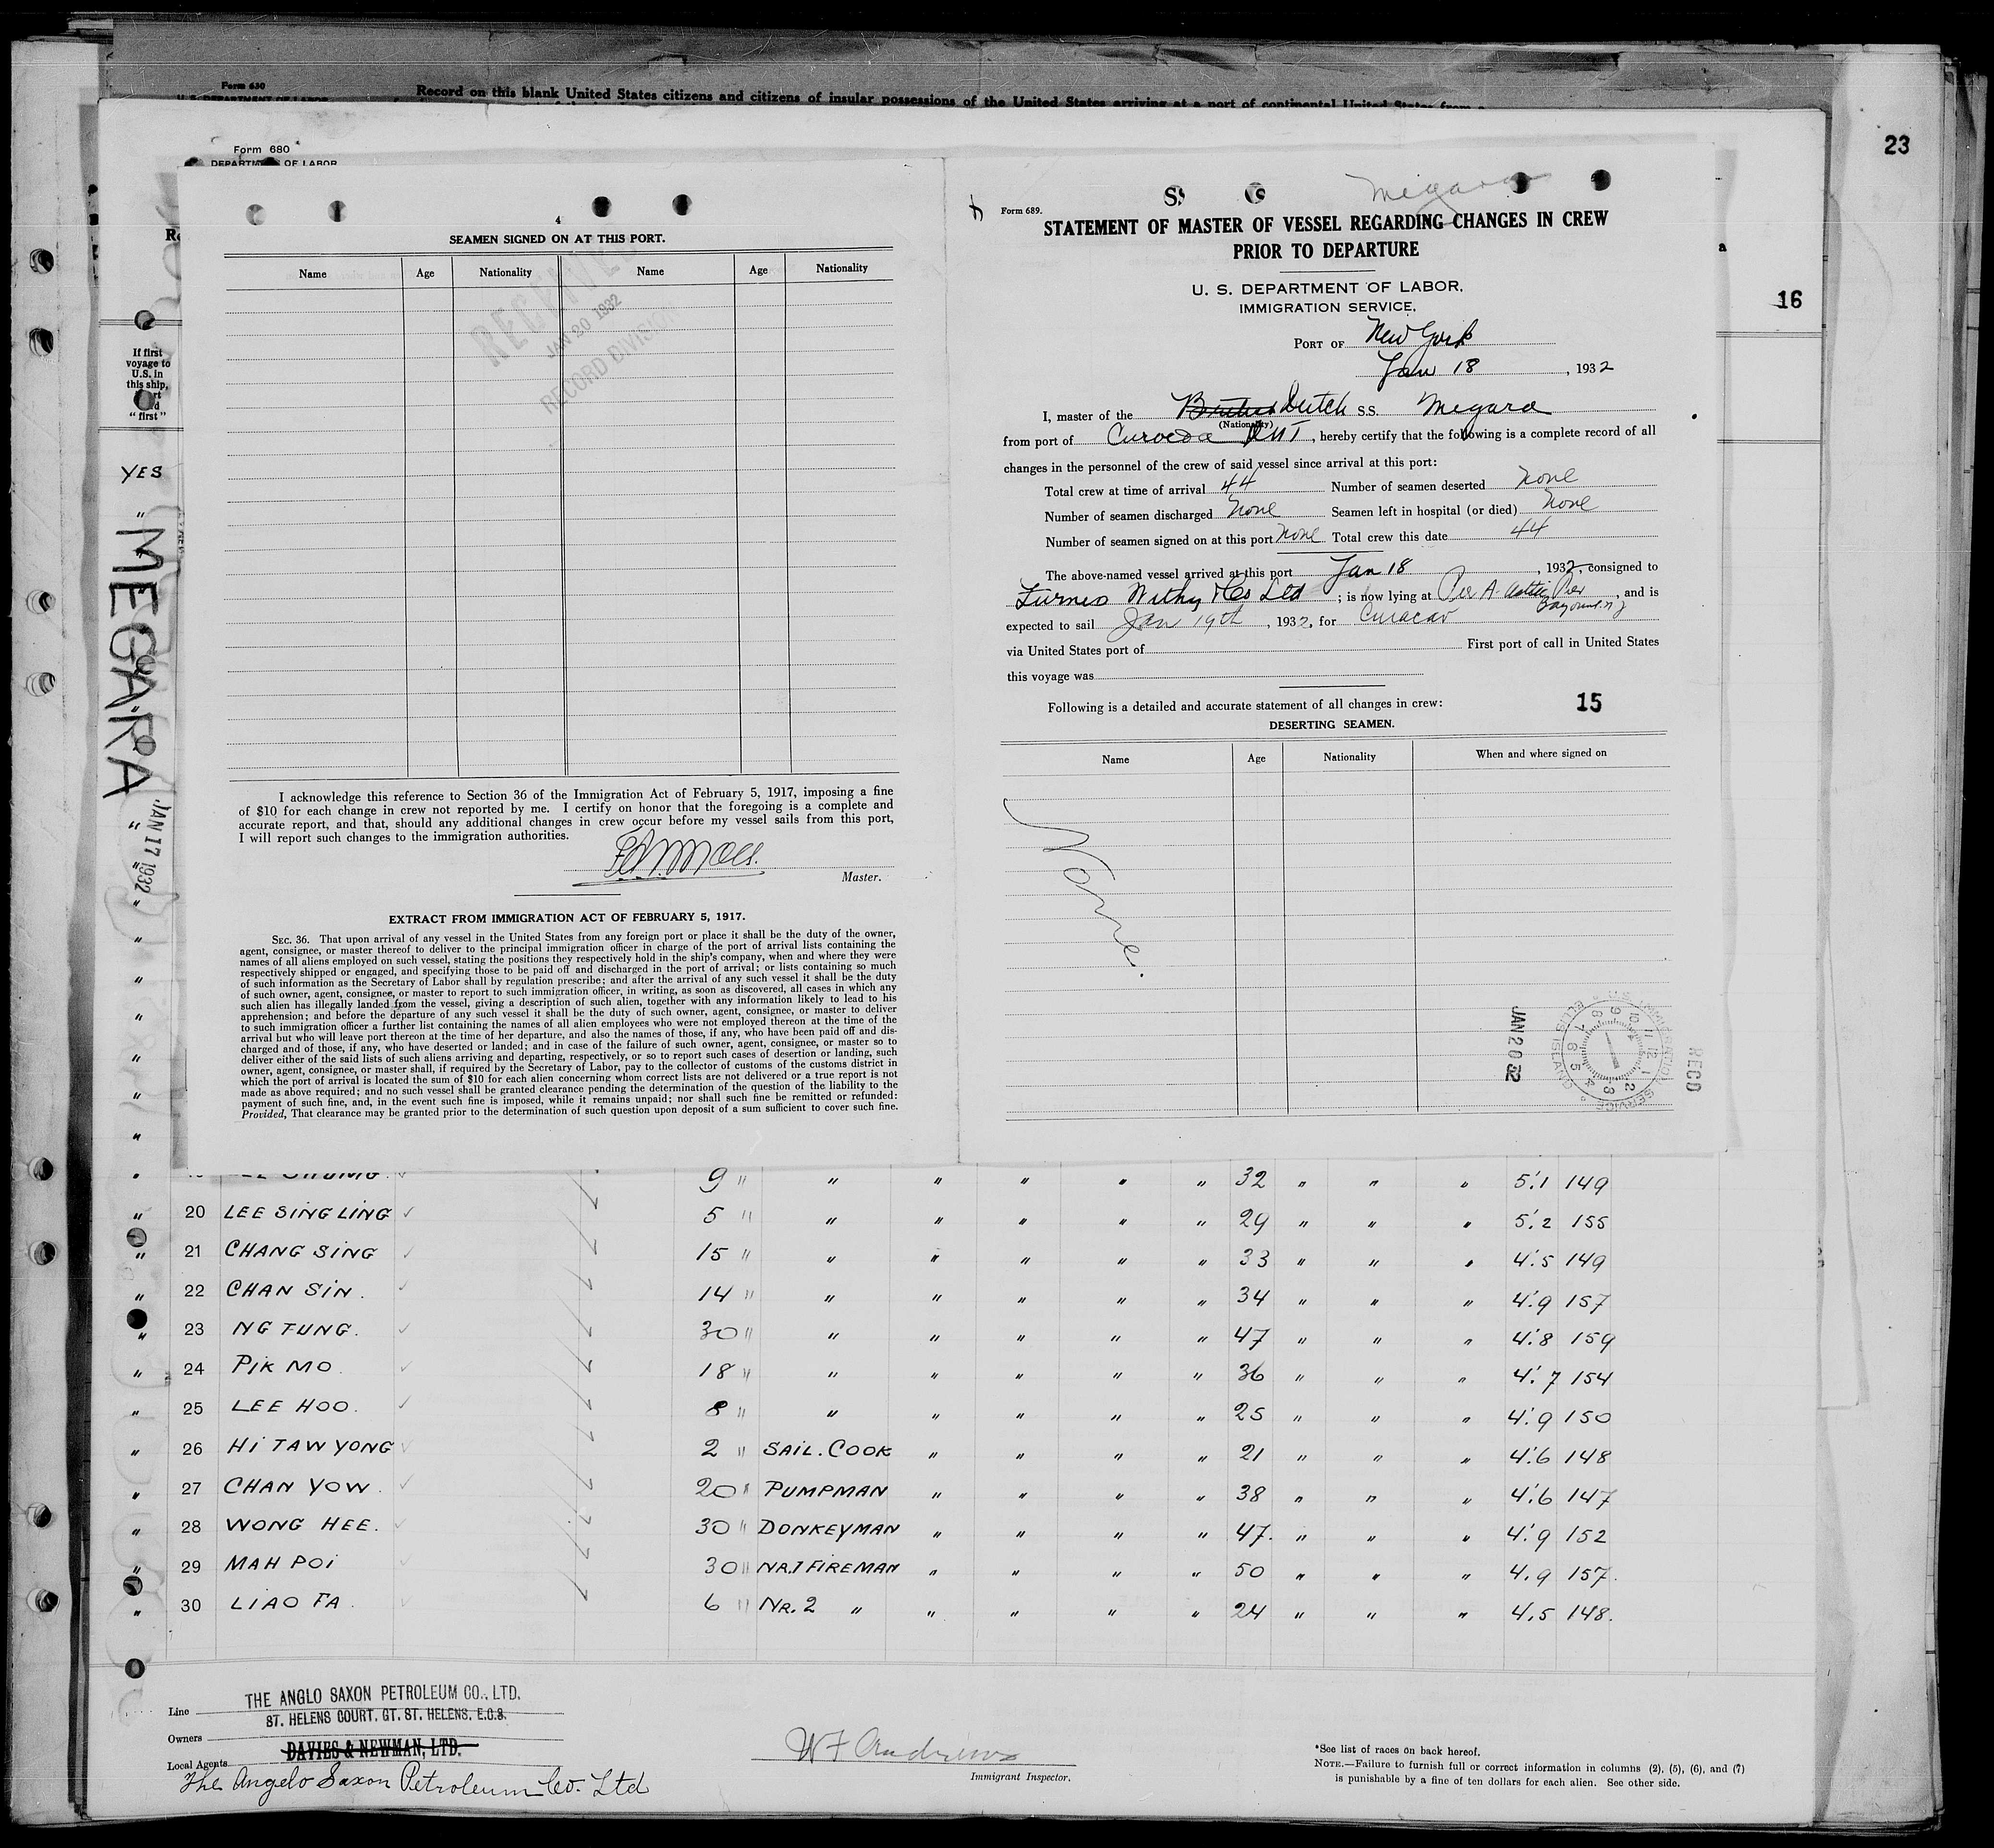 Form 630
U. S. DEPARTMENT OF LABOR
Record on this blank United States citizens and citizens of insular possessions of the United States arriving at a port of continental United States from a
23
Form 680
DEPARTMENT OF LABOR
16
If first
voyage to
U.S. in
this ship,
"first"
YES
"
MEGARA
JAN 17 1932
4
SEAMEN SIGNED ON AT THIS PORT.
Name Age Nationality Name Age Nationality
RECEIVED
JAN 20 1932
RECORD DIVISION
I acknowledge this reference to Section 36 of the Immigration Act of February 5, 1917, imposing a fine
of $10 for each change in crew not reported by me. I certify on honor that the foregoing is a complete and
accurate report, and that, should any additional changes in crew occur before my vessel sails from this port,
I will report such changes to the immigration authorities.
Master.
EXTRACT FROM IMMIGRATION ACT OF FEBRUARY 5, 1917.
SEC. 36. That upon arrival of any vessel in the United States from any foreign port or place it shall be the duty of the owner,
agent, consignee, or master thereof to deliver to the principal immigration officer in charge of the port of arrival lists containing the
names of all aliens employed on such vessel, stating the positions they respectively hold in the ship's company, when and where they were
respectively shipped or engaged, and specifying those to be paid off and discharged in the port of arrival; or lists containing so much
of such information as the Secretary of Labor shall by regulation prescribe; and after the arrival of any such vessel it shall be the duty
of such owner, agent, consignee, or master to report to such immigration officer, in writing, as soon as discovered, all cases in which any
such alien has illegally landed from the vessel, giving a description of such alien, together with any information likely to lead to his
apprehension; and before the departure of any such vessel it shall be the duty of such owner, agent, consignee, or master to deliver
to such immigration officer a further list containing the names of all alien employees who were not employed thereon at the time of the
arrival but who will leave port thereon at the time of her departure, and also the names of those, if any, who have been paid off and dis-
charged and of those, if any, who have deserted or landed; and in case of the failure of such owner, agent, consignee, or master so to
deliver either of the said lists of such aliens arriving and departing, respectively, or so to report such cases of desertion or landing, such
owner, agent, consignee, or master shall, if required by the Secretary of Labor, pay to the collector of customs of the customs district in
which the port of arrival is located the sum of $10 for each alien concerning whom correct lists are not delivered or a true report is not
made as above required; and no such vessel shall be granted clearance pending the determination of the question of the liability to the
payment of such fine, and, in the event such fine is imposed, while it remains unpaid; nor shall such fine be remitted or refunded:
Provided, That clearance may be granted prior to the determination of such question upon deposit of a sum sufficient to cover such fine.
S. S Megara
Form 689.
STATEMENT OF MASTER OF VESSEL REGARDING CHANGES IN CREW
PRIOR TO DEPARTURE
U. S. DEPARTMENT OF LABOR,
IMMIGRATION SERVICE,
PORT OF New York
Jan 18, 1932
I, master of the British Dutch S.S. Megara
(Nationality)
from port of, hereby certify that the following is a complete record of all
changes in the personnel of the crew of said vessel since arrival at this port:
Total crew at time of arrival 44 Number of seamen deserted None
Number of seamen discharged None Seamen left in hospital (or died) None
Number of seamen signed on at this port None Total crew this date 44
The above-named vessel arrived at this port Jan 18, 1932, consigned to
Furness Withy & Co Ltd; is now lying at Pier A Pier Bayonne N J, and is
expected to sail Jan 19th, 1932, for Curacao
via United States port of First port of call in United States
this voyage was
Following is a detailed and accurate statement of all changes in crew: 15
DESERTING SEAMEN.
Name Age Nationality When and where signed on
None.
JAN 20 32
U.S. IMMIGRATION SERVICE ELLIS ISLAND
RECD
9 " " " " " " 32 " " " 5'.1 149
" 20 LEE SING LING 5 " " " " " " 29 " " " 5'.2 155
" 21 CHANG SING 15 " " " " " " 33 " " " 4'.5 149
" 22 CHAN SIN. 14 " " " " " " 34 " " " 4'.9 157
" 23 NG FUNG. 30 " " " " " " 47 " " " 4'.8 159
" 24 PIK MO. 18 " " " " " " 36 " " " 4'.7 154
" 25 LEE HOO. 8 " " " " " " 25 " " " 4'.9 150
" 26 HI TAW YONG 2 " SAIL. COOK " " " " 21 " " " 4'.6 148
" 27 CHAN YOW. 20 " PUMPMAN " " " " 38 " " " 4'.6 147
" 28 WONG HEE. 30 " DONKEYMAN " " " " 47. " " " 4'.9 152
" 29 MAH POI 30 " NR.1 FIREMAN " " " " 50 " " " 4.9 157.
" 30 LIAO FA. 6 " NR. 2 " " " " " 24 " " " 4.5 148.
Line THE ANGLO SAXON PETROLEUM CO., LTD.
ST. HELENS COURT, GT. ST. HELENS, E.C.3.
Owners
DAVIES & NEWMAN, LTD.
Local Agents
The Angelo Saxon Petroleum Co. Ltd
W F Andrews
Immigrant Inspector.
*See list of races on back hereof.
NOTE.—Failure to furnish full or correct information in columns (2), (5), (6), and (7)
is punishable by a fine of ten dollars for each alien. See other side.